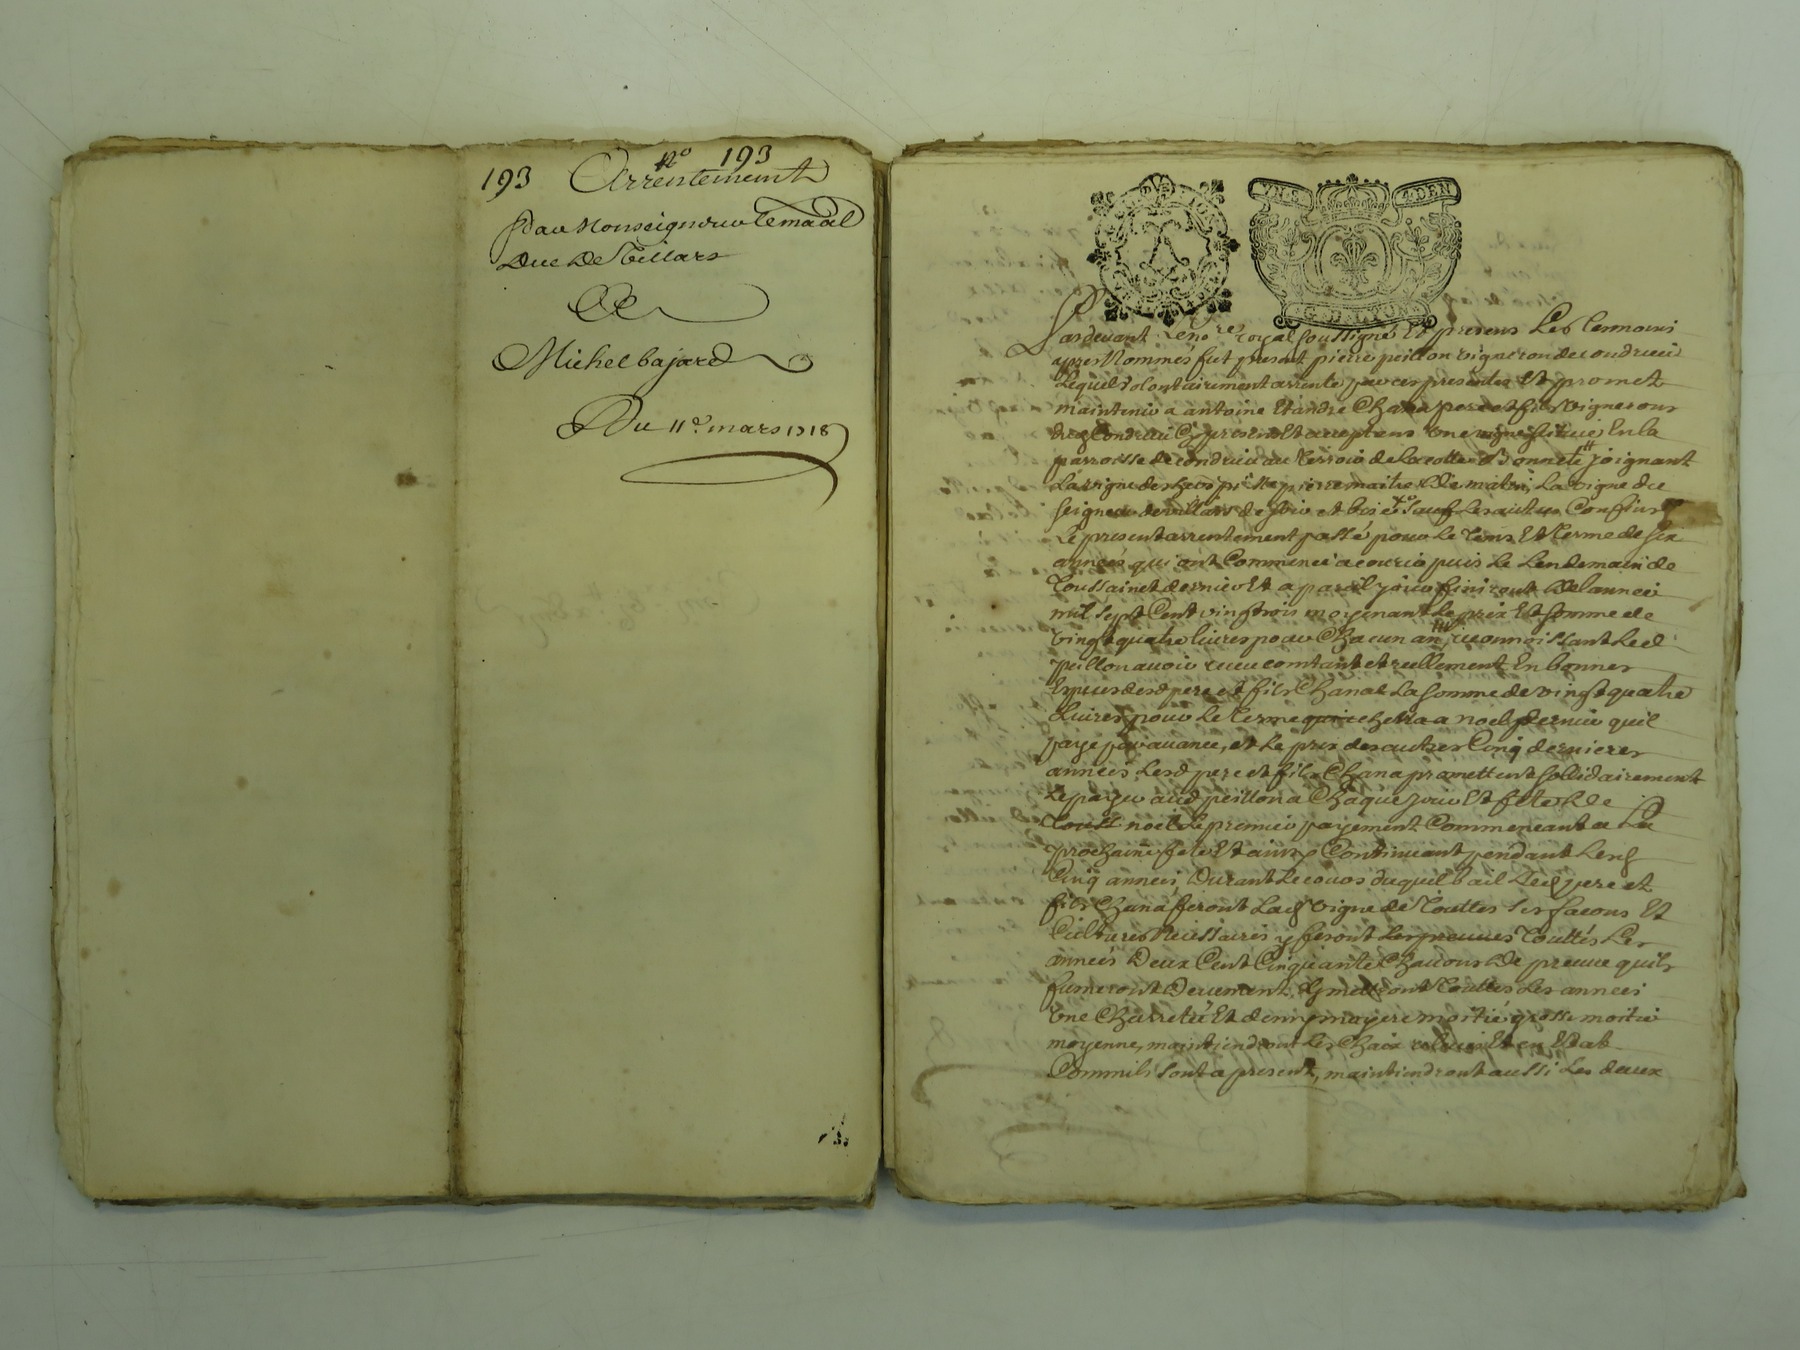 193
n.o 193
Arrentement
Par Monseigneur le maal
Duc De Villars
A
Michel bajard
Du 11e. mars 1718
DVE
VNG 4DEN
G. D. LYON
Pardevant le no.re royal soussigné Et presens Les temoins
apres Nommes fut present pierre peillon vigneron de condrieu
Lequel volontairement arrente par ces presentes Et promet
maintenir a antoine Et andre Chana pere et fils Vignerons
dud Condrieu Cy presens Et acceptans une vigne situee En la
parroisse de condrieu au terroir de La cotte joignant
La vigne de pierre maitre De matin, La vigne du
seigneur de villars de soir et bise sauf Les autres Confins
Le present arrentement passé pour Le tems Et terme de six
années qui ont Commencé a courir puis Le Lendemain de
Toussainct dernier Et a pareil jour finiront De lannée
mil sept Cent vingt trois moyenant Le prix Et somme de
vingt quatre livres pour Chacun an, reconnoissant Led
peillon avoir receu comtant et reellement En bonnes
Especes desd pere et fils Chana La somme de vingt quatre
Livres pour Le terme a noel dernier quil
paye par avance, et Le prix des autres Cinq dernieres
années Lesd pere et fils Chana promettent sollidairement
Le payer aud peillon a Chaque jour Et fete De
noel Le premier payement Commencant a La
prochaine fete Et ainsy Continuant pendant Lesd
Cinq années, Durant Le cours duquel bail Lesd pere et
fils Chana feront Lad Vigne de Touttes ses facons Et
Cultures Necessaires y feront Les preuves Touttes Les
années Deux Cent Cinquante Chavons De preuve quils
fumeront Deuement, y mettront Touttes Les années
Une Charretée Et demy moitié grosse moitié
moyenne, maintiendront Les Chaix Et en Etat
Comm'ils sont a present, maintiendront aussi Les deux